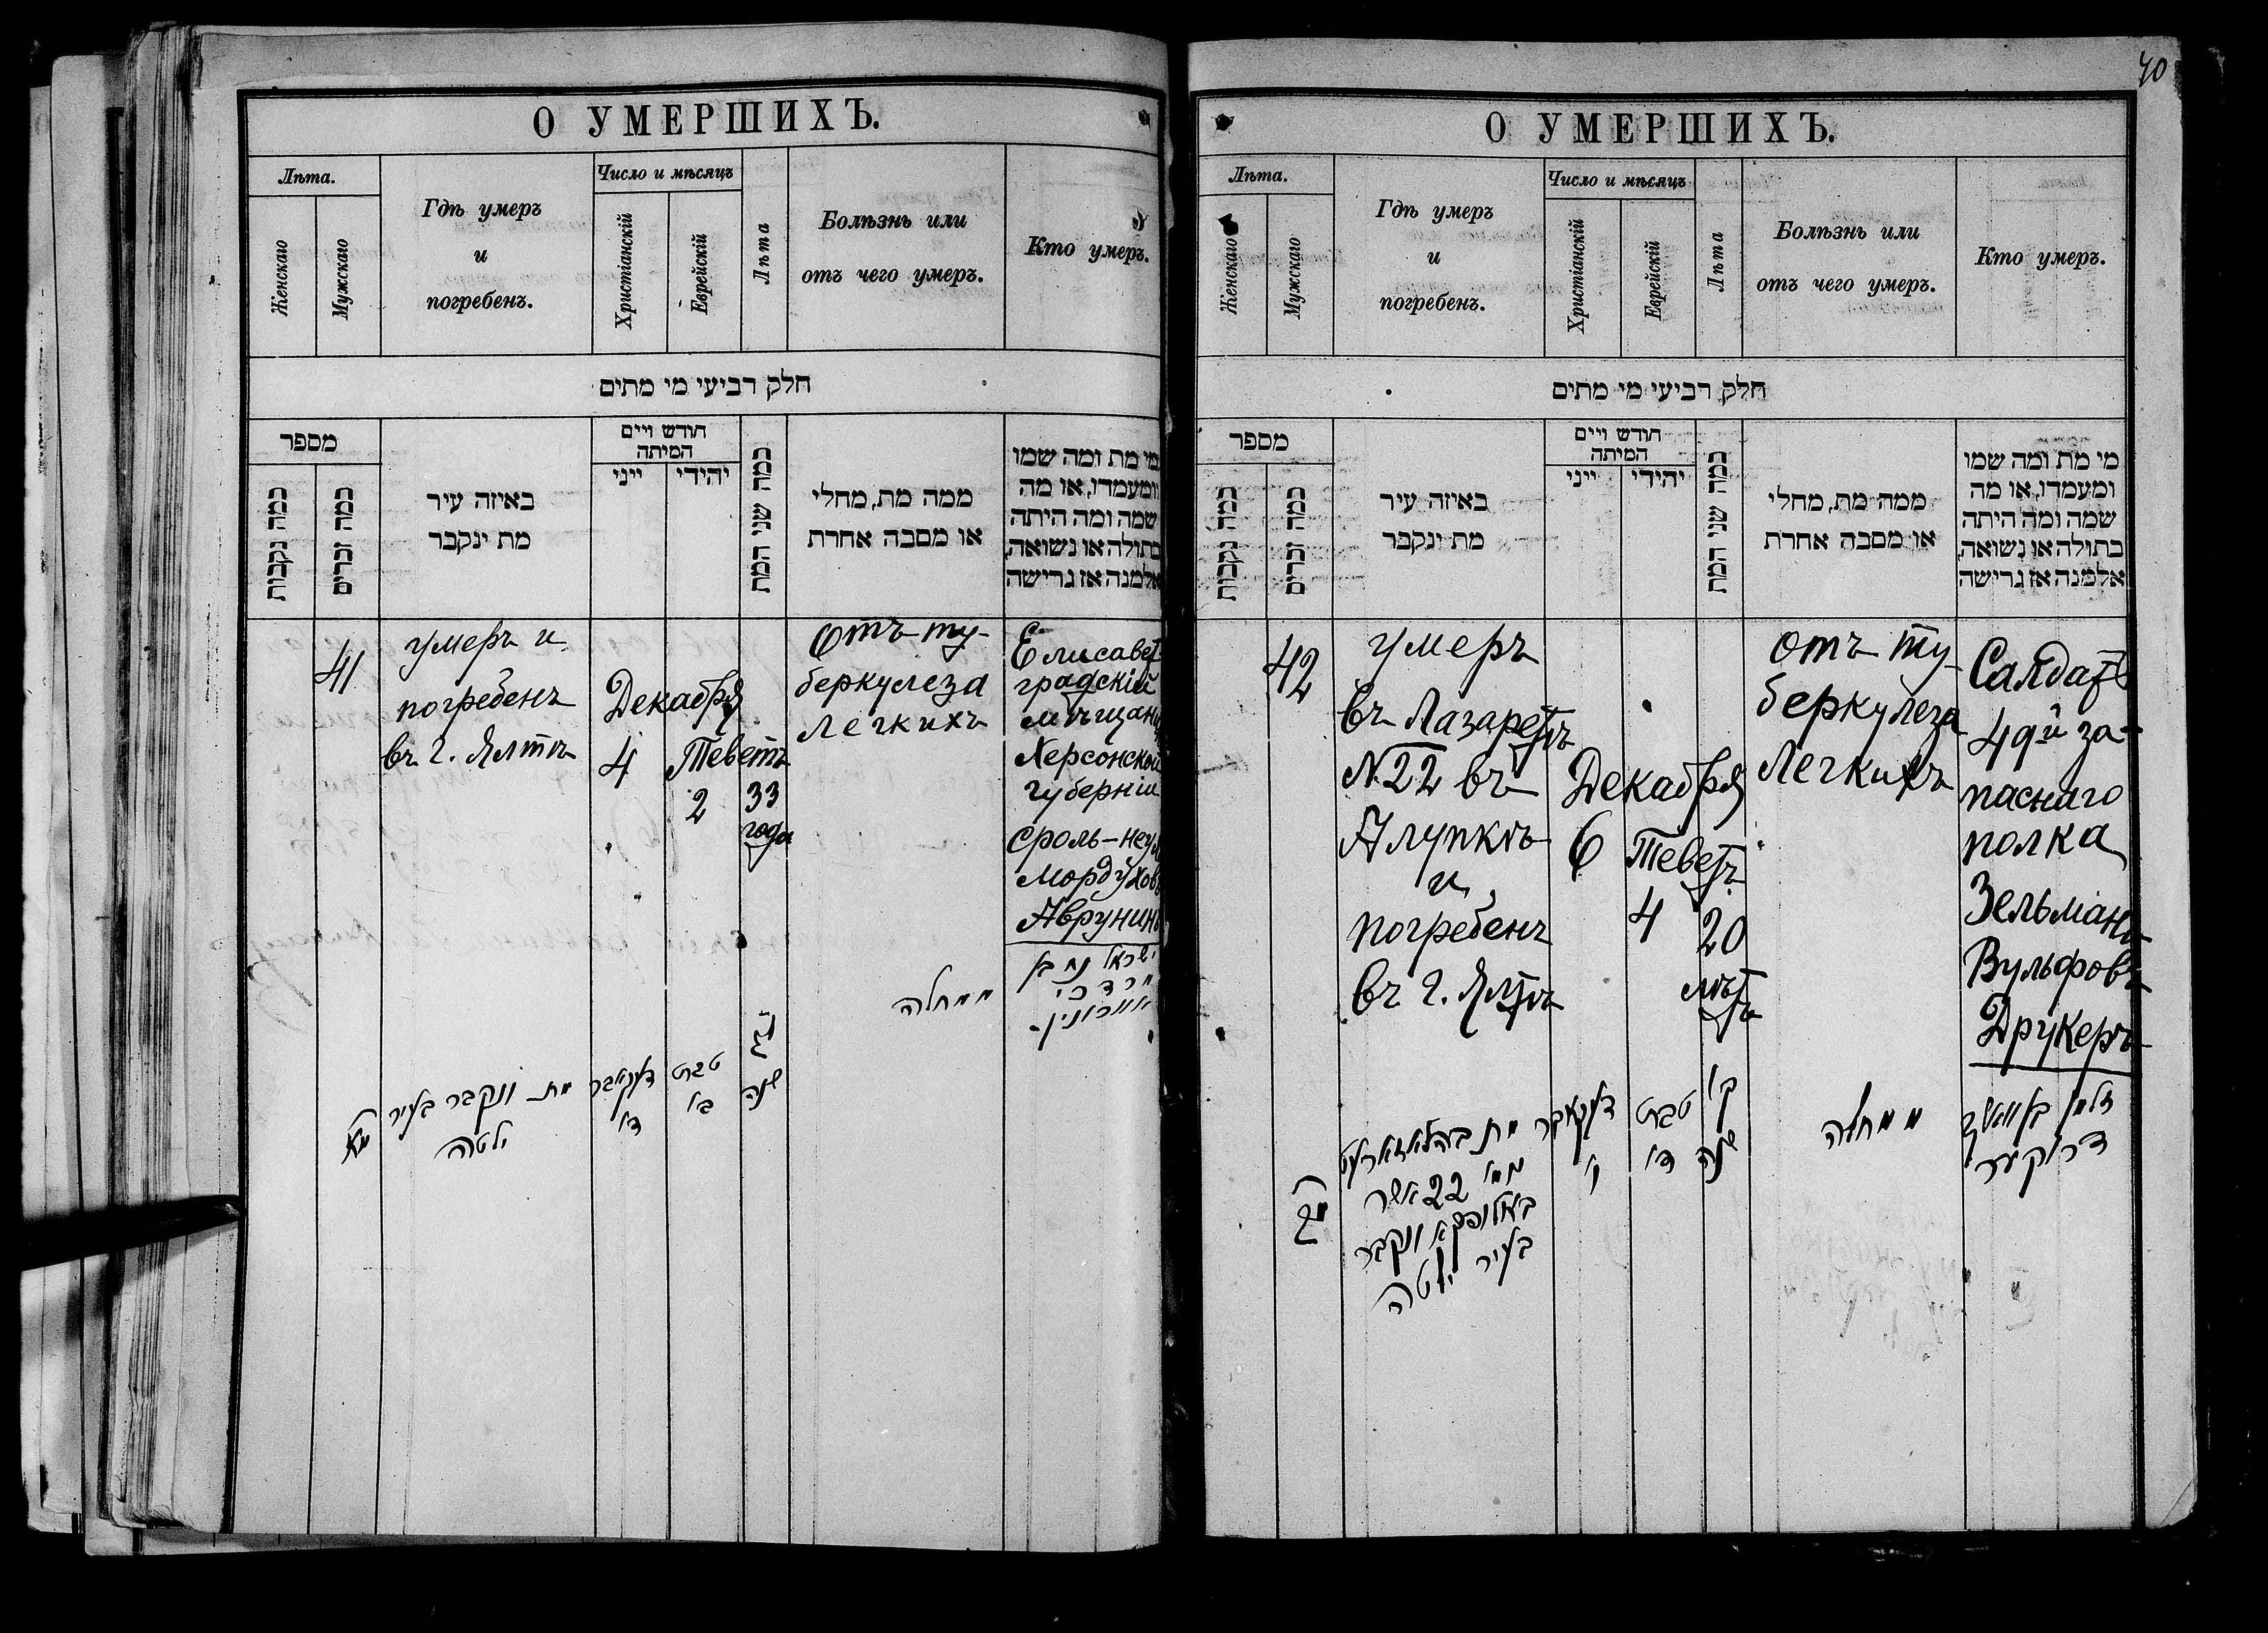 40
О УМЕРШИХЪ.
Лѣта.
Женскаго
Мужскаго
Гдѣ умеръ
и
погребенъ.
Число и мѣсяцъ
Христіанскій
Еврейскій
Лѣта
Болѣзнь или
отъ чего умеръ.
Кто умеръ.
חלק רביעי מי מתים
מספר
כמה נקבות
כמה זכרים
באיזה עיר
מת ינקבר
חודש ויים
המיתה
ייני
יהידי
כמה שני המת
ממה מת, מחלי
או מסבה אחרת
מי מת ומה שמו
ומעמדו, או מה
שמה ומה היתה
בתולה או נשואה,
אלמנה אז גרישה
41
умеръ и
погребенъ
въ г. Ялтѣ
Декабря
4
Теветъ
2
33
года
Отъ ту-
беркулеза
легкихъ
Елисавет
градскій
мѣщанинъ
Херсонской
губерніи
Сроль-неух
Мордухов
Аврунинъ
ישראל נח בן
מרדכי
אוורונין.
מא
מת ונקבר בעיר
ילטה
דעקאבר
ד׳
טבת
ב׳
לג
שנה
ממחלה
О УМЕРШИХЪ.
Лѣта.
Женскаго
Мужскаго
Гдѣ умеръ
и
погребенъ.
Число и мѣсяцъ
Христіанскій
Еврейскій
Лѣта
Болѣзнь или
отъ чего умеръ.
Кто умеръ.
חלק רביעי מי מתים
מספר
כמה נקבות
כמה זכרים
באיזה עיר
מת ינקבר
חודש ויים
המיתה
ייני
יהידי
כמה שני המת
ממה מת, מחלי
או מסבה אחרת
מי מת ומה שמו
ומעמדו, או מה
שמה ומה היתה
בתולה או נשואה,
אלמנה אז גרישה
42
умеръ
въ Лазаретѣ
№22 въ
Алупкѣ
и
погребенъ
въ г. Ялтѣ
Декабря
6
Теветъ
4
20
лѣтъ
отъ ту-
беркулеза
Легкихъ
Салдатъ
49й за-
паснаго
полка
Зельманъ
Вульфовъ
Друкеръ
מב
מת בהלאזארעט
נומ׳ 22 אשר
באלופקא ונקבר
בעיר ילטה
דעקאבר
ו׳
טבת
ד׳
כ׳
שנה
ממחלה
זלמן בן וואלף
דרוקער